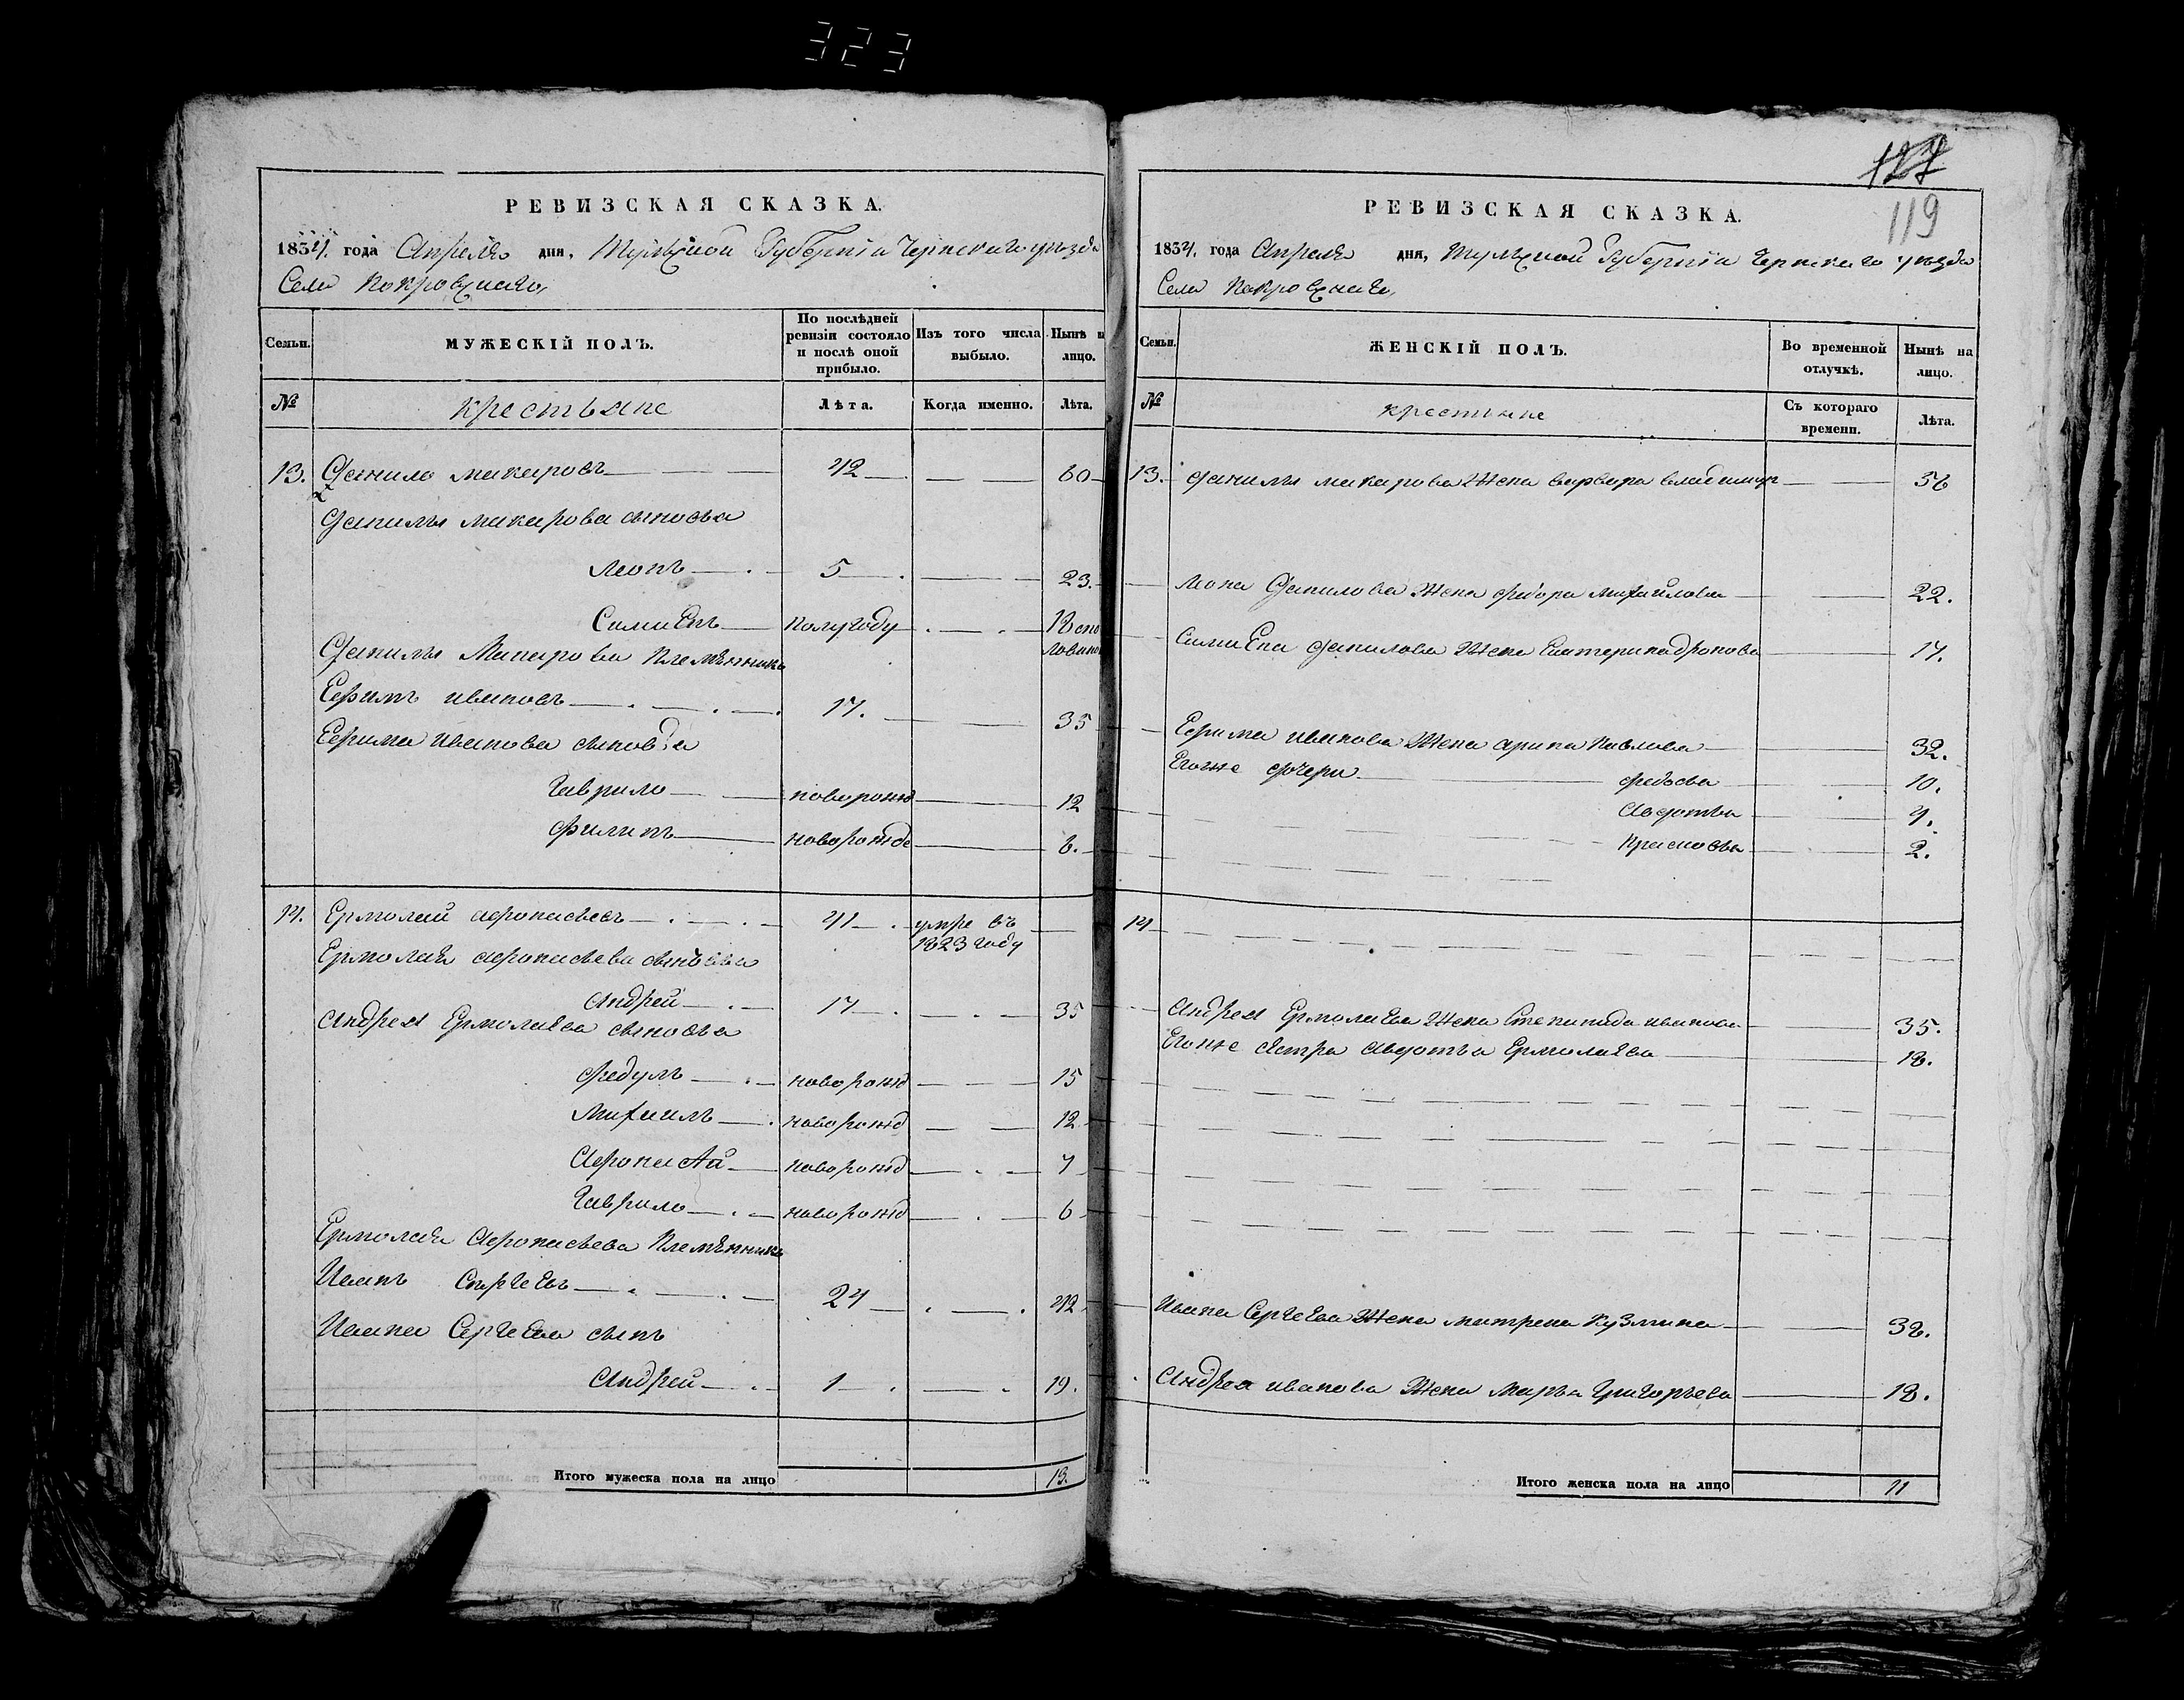 323
РЕВИЗСКАЯ СКАЗКА.
1834. года Апреля дня, Тульской Губернiи Чернскаго уезда
Села Покровскаго,
Семьи.
МУЖЕСКIЙ ПОЛЪ.
По послѣдней ревизiи состояло и послѣ оной прибыло.
Изъ того числа выбыло.
Нынѣ на лицо.
№
крестьяне
Лѣта.
Когда именно.
Лѣта.
13. Данило макаровъ 42 60
Данилы макарова сыновья
Леонъ 5 23.
Симиенъ полугоду 18 споловиной
Данилы Макарова племѣнники
Ефимъ ивановъ 17. 35
Ефима иванова сыновья
Гаврило новорожд 12
Филипъ новорожде 6.
14. Ермолай афонасьевъ 41 умре въ 1823 году
Ермолая афонасьева сыновья
Андрей 17 35
Андрея Ермолаева сыновья
Федулъ новорожд 15
Михаилъ новорожд 12
Афонасiй новорожд 7
Гаврило новорожд 6
Ермолая Афонасьева племѣнники
Иванъ Сергеевъ 24 42
Ивана Сергеева сынъ
Андрей 1 19.
Итого мужеска пола на лицо 13.
127
119
РЕВИЗСКАЯ СКАЗКА.
1834. года Апреля дня, Тульской Губернiи Чернскаго уезда
Села Покровскаго,
Семьи.
ЖЕНСКIЙ ПОЛЪ.
Во временной отлучкѣ.
Нынѣ на лицо.
№
крестьяне
Съ котораго времени.
Лѣта.
13. Данилы макарова Жена варвара владимир 56
Леона Данилова Жена федора михайлова 22.
Симиена Данилова Жена Екатерина 17.
Ефима иванова Жена арина Павлова 32.
Егоже дочери федосья 10.
Авдотья 4.
Прасковья 2.
14
Андрея Ермолаева Жена Степанида иванова 35.
Егоже сестра Авдотья Ермолаева 18.
Ивана Сергеева Жена матрена Кузмина 38.
Андрея иванова Жена марья Григорьева 18.
Итого женска пола на лицо 11